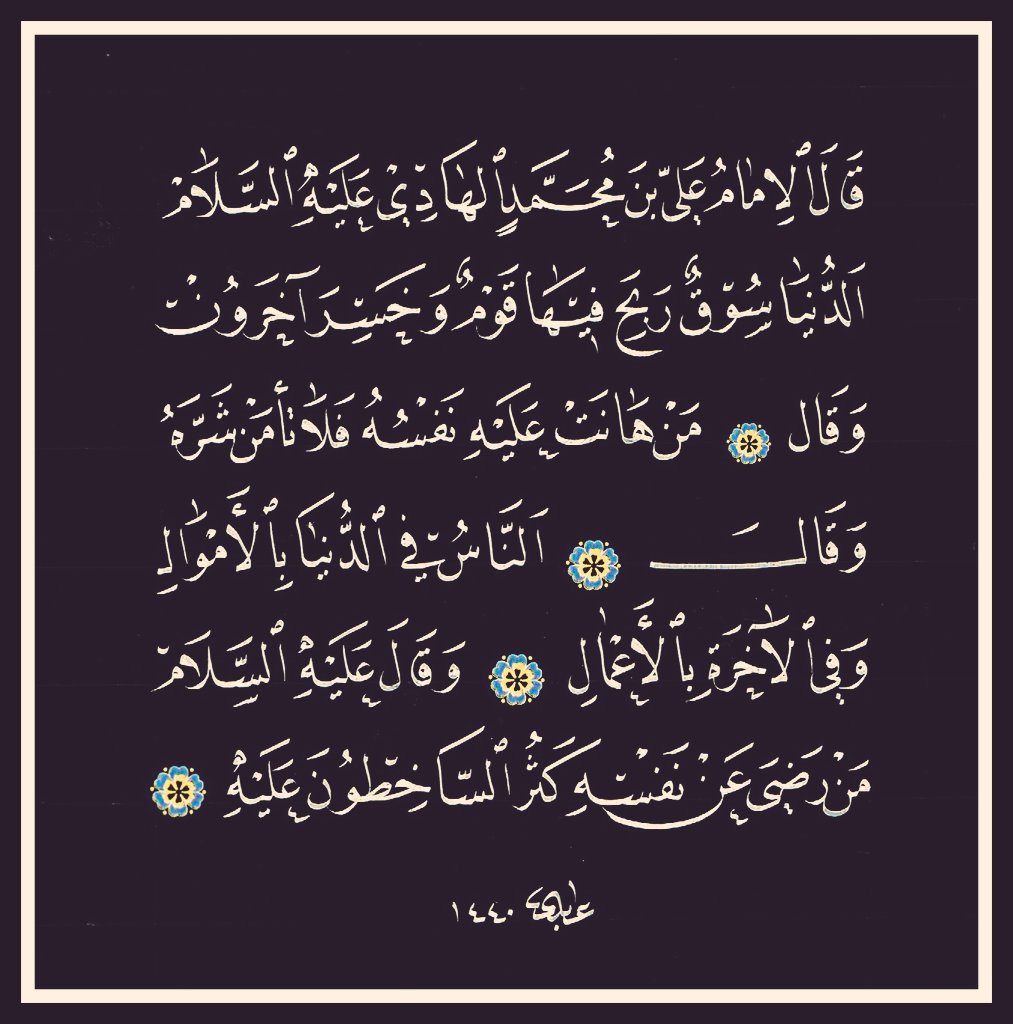 قَالَ ٱلإِمَامُ عَلِيّ بنَ مُحَمَّدٍ ٱلهَادِيْ عَلَيْهِ ٱلسَّلَامْ
اَلدُّنْيَا سُوْقٌ رَبِحَ فِيْهَا قَوْمٌ وَخَسِرَ آخَرَوُنْ
وَقَال مَنْ هَانَتْ عَلَيْهِ نَفْسُهُ فَلَا تَأْمَنْ شَرَّهُ
وَقَالَ اَلنَّاسُ فِي ٱلدُّنْيَا بِٱلأَمْوَالِ
وَفِي ٱلآخِرَةِ بِٱلأَعْمَالِ وَقَالَ عَلَيْهِ ٱلسَّلَامْ
مَنْ رَضِيَ عَنْ نَفْسِهِ كَثُرَ ٱلسَّاخِطُونَ عَلَيْهِ
١٤٤٠